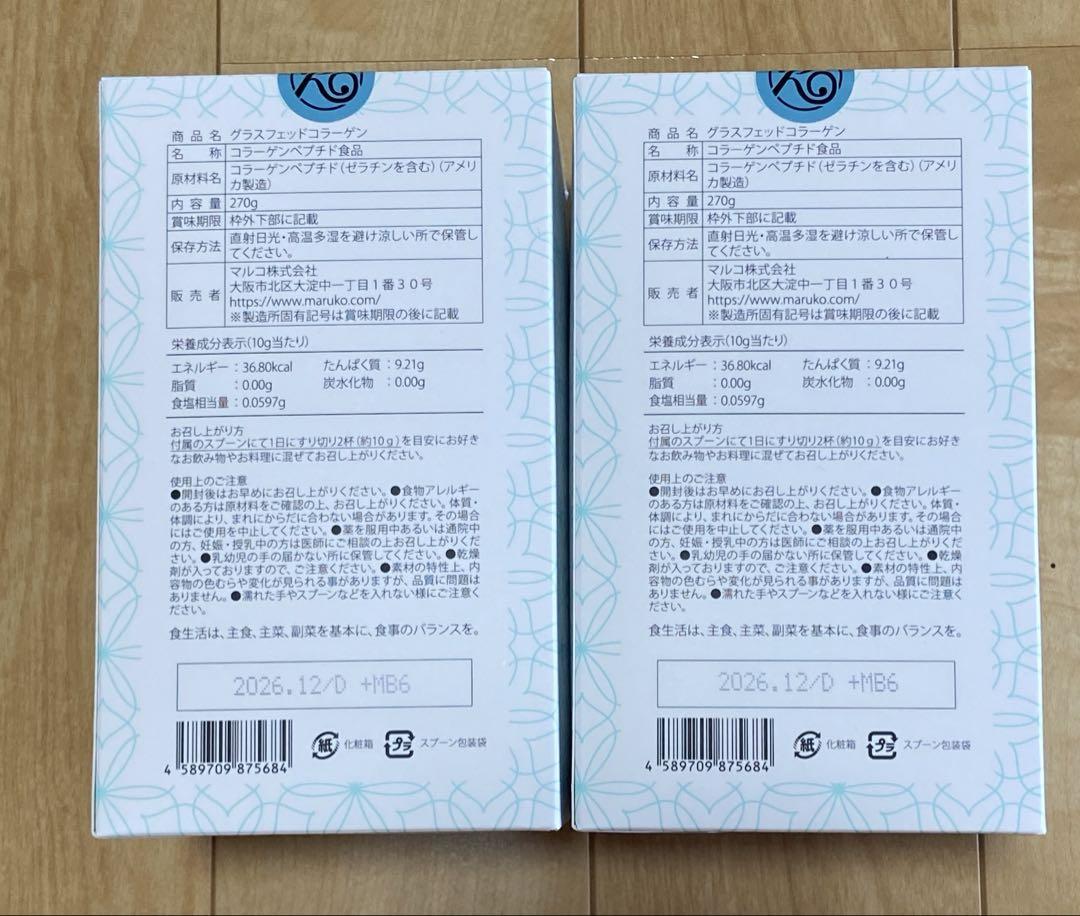 商品名 グラスフェッドコラーゲン
名称 コラーゲンペプチド食品
原材料名 コラーゲンペプチド（ゼラチンを含む）（アメリ
カ製造）
内容量 270g
賞味期限 枠外下部に記載
保存方法 直射日光・高温多湿を避け涼しい所で保管し
てください。
販売者 マルコ株式会社
大阪市北区大淀中一丁目1番30号
https://www.maruko.com/
※製造所固有記号は賞味期限の後に記載
栄養成分表示（10g当たり）
エネルギー：36.80kcal たんぱく質：9.21g
脂質：0.00g 炭水化物：0.00g
食塩相当量：0.0597g
お召し上がり方
付属のスプーンにて1日にすり切り2杯（約10g）を目安にお好き
なお飲み物やお料理に混ぜてお召し上がりください。
使用上のご注意
●開封後はお早めにお召し上がりください。●食物アレルギー
のある方は原材料をご確認の上、お召し上がりください。体質・
体調により、まれにからだに合わない場合があります。その場合
にはご使用を中止してください。●薬を服用中あるいは通院中
の方、妊娠・授乳中の方は医師にご相談の上お召し上がりくだ
さい。●乳幼児の手の届かない所に保管してください。●乾燥
剤が入っておりますので、ご注意ください。●素材の特性上、内
容物の色むらや変化が見られる事がありますが、品質に問題は
ありません。●濡れた手やスプーンなどを入れない様にご注意く
ださい。
食生活は、主食、主菜、副菜を基本に、食事のバランスを。
2026.12/D +MB6
4 589709 875684
紙 化粧箱 プラ スプーン包装袋
商品名 グラスフェッドコラーゲン
名称 コラーゲンペプチド食品
原材料名 コラーゲンペプチド（ゼラチンを含む）（アメリ
カ製造）
内容量 270g
賞味期限 枠外下部に記載
保存方法 直射日光・高温多湿を避け涼しい所で保管し
てください。
販売者 マルコ株式会社
大阪市北区大淀中一丁目1番30号
https://www.maruko.com/
※製造所固有記号は賞味期限の後に記載
栄養成分表示（10g当たり）
エネルギー：36.80kcal たんぱく質：9.21g
脂質：0.00g 炭水化物：0.00g
食塩相当量：0.0597g
お召し上がり方
付属のスプーンにて1日にすり切り2杯（約10g）を目安にお好き
なお飲み物やお料理に混ぜてお召し上がりください。
使用上のご注意
●開封後はお早めにお召し上がりください。●食物アレルギー
のある方は原材料をご確認の上、お召し上がりください。体質・
体調により、まれにからだに合わない場合があります。その場合
にはご使用を中止してください。●薬を服用中あるいは通院中
の方、妊娠・授乳中の方は医師にご相談の上お召し上がりくだ
さい。●乳幼児の手の届かない所に保管してください。●乾燥
剤が入っておりますので、ご注意ください。●素材の特性上、内
容物の色むらや変化が見られる事がありますが、品質に問題は
ありません。●濡れた手やスプーンなどを入れない様にご注意く
ださい。
食生活は、主食、主菜、副菜を基本に、食事のバランスを。
2026.12/D +MB6
4 589709 875684
紙 化粧箱 プラ スプーン包装袋